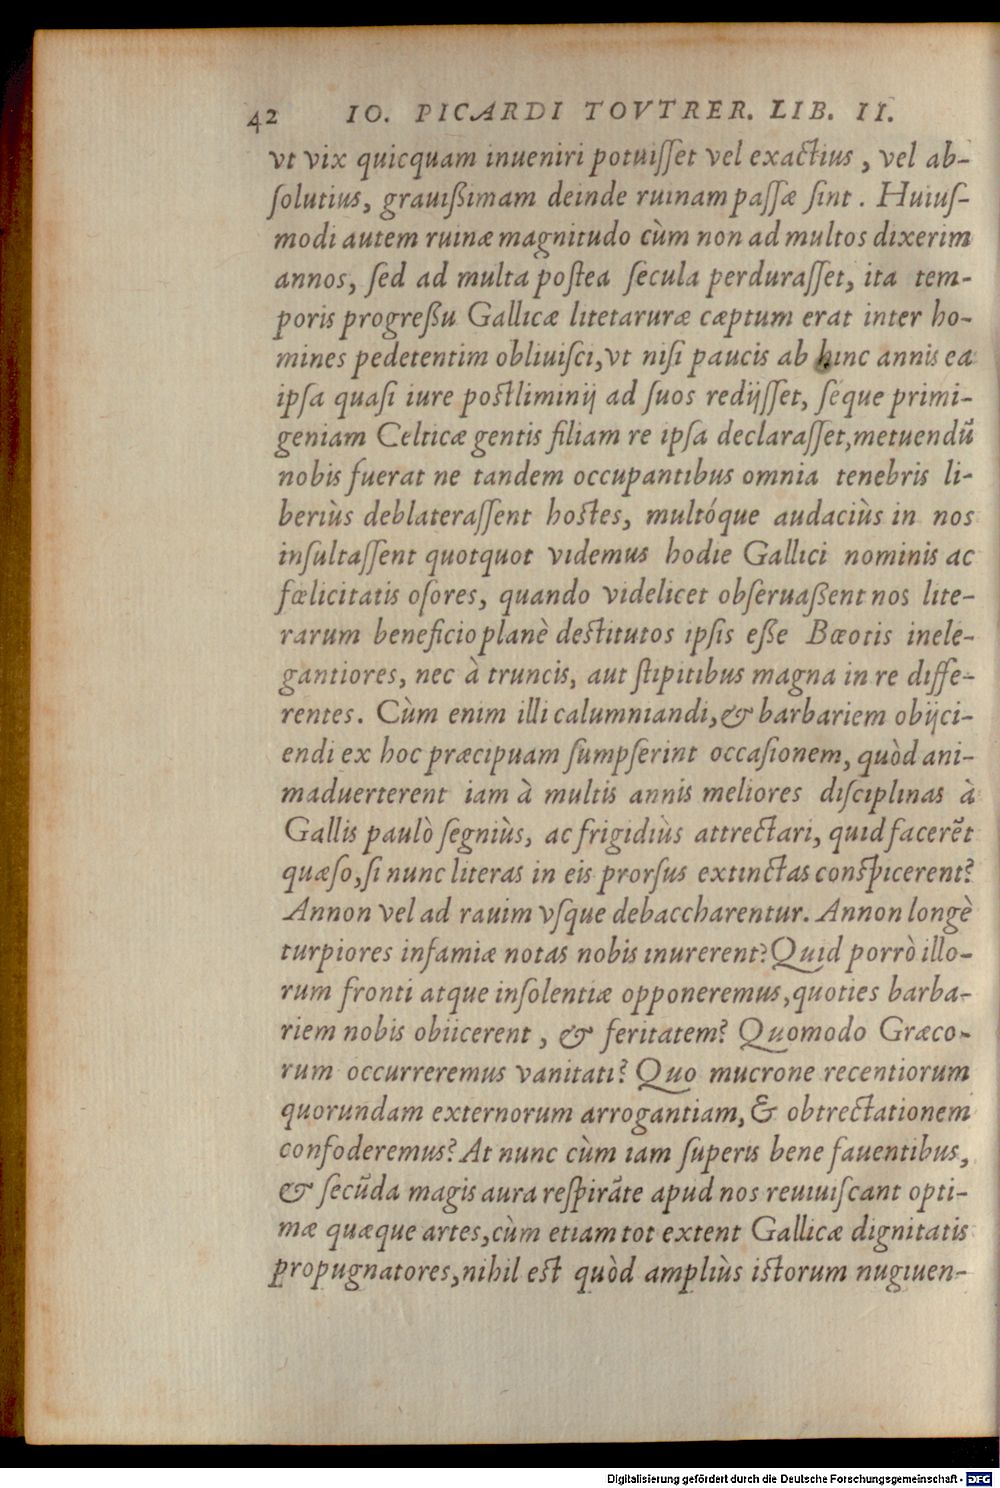 42 IO. PICARDI TOVTRER. LIB. II.
vt vix quicquam inueniri potuiſſet vel exactius, vel ab-
ſolutius, grauißimam deinde ruinam paſſæ ſint. Huiuſ-
modi autem ruinæ magnitudo cùm non ad multos dixerim
annos, ſed ad multa poſtea ſecula perduraſſet, ita tem-
poris progreßu Gallicæ litetaruræ cæptum erat inter ho-
mines pedetentim obliuiſci, vt niſi paucis ab hinc annis ea
ipſa quaſi iure poſtliminij ad ſuos redijſſet, ſéque primi-
geniam Celticæ gentis filiam re ipſa declaraſſet, metuendũ
nobis fuerat ne tandem occupantibus omnia tenebris li-
beriùs deblateraſſent hoſtes, multóque audaciùs in nos
inſultaſſent quotquot videmus hodie Gallici nominis ac
fœlicitatis oſores, quando videlicet obſeruaßent nos lite-
rarum beneficio planè deſtitutos ipſis eße Bœotis inele-
gantiores, nec à truncis, aut ſtipitibus magna in re diffe-
rentes. Cùm enim illi calumniandi, & barbariem obijci-
endi ex hoc præcipuam ſumpſerint occaſionem, quòd ani-
maduerterent iam à multis annis meliores diſciplinas à
Gallis paulò ſegniùs, ac frigidiùs attrectari, quid facerẽt
quæſo, ſi nunc literas in eis prorſus extinctas conſpicerent?
Annon vel ad rauim vſque debaccharentur. Annon longè
turpiores infamiæ notas nobis inurerent? Quid porrò illo-
rum fronti atque inſolentiæ opponeremus, quoties barba-
riem nobis obiicerent, & feritatem? Quomodo Græco-
rum occurreremus vanitati? Quo mucrone recentiorum
quorundam externorum arrogantiam, & obtrectationem
confoderemus? At nunc cùm iam ſuperis bene fauentibus,
& ſecũda magis aura reſpirãte apud nos reuiuiſcant opti-
mæ quæque artes, cùm etiam tot extent Gallicæ dignitatis
propugnatores, nihil eſt quòd ampliùs iſtorum nugiuen-
Digitalisierung gefördert durch die Deutsche Forschungsgemeinschaft - DFG